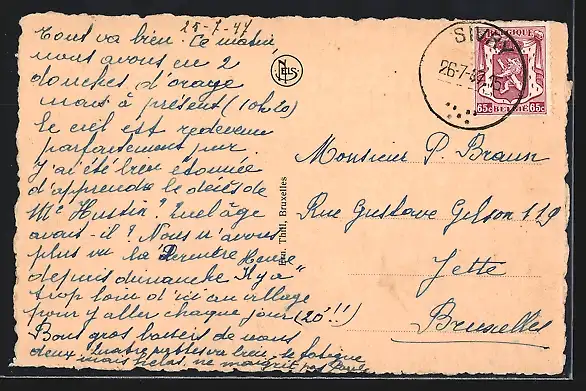 25-7-47
Tout va bien. Ce matin
nous avons eu 2
douches d'orage
mais à présent (10h20)
le ciel est redevenu
parfaitement pur.
J'ai été bien étonnée
d'apprendre le décès de
Mr Hustin? Quel âge
avait-il? Nous n'avons
plus vu la "Dernière Heure"
depuis dimanche. Il y a
trop loin d'ici au village
pour y aller chaque jour (20'!!)
Bons gros baisers de nous
deux. va bien, se fatigue
mais hélas, ne maigrit pas
NELS
Thill, Bruxelles
SIVRY
26-7-47
BELGIQUE
65c BELGIË 65c
Monsieur P. Braun
Rue Gustave Gilson 119
Jette
Bruxelles